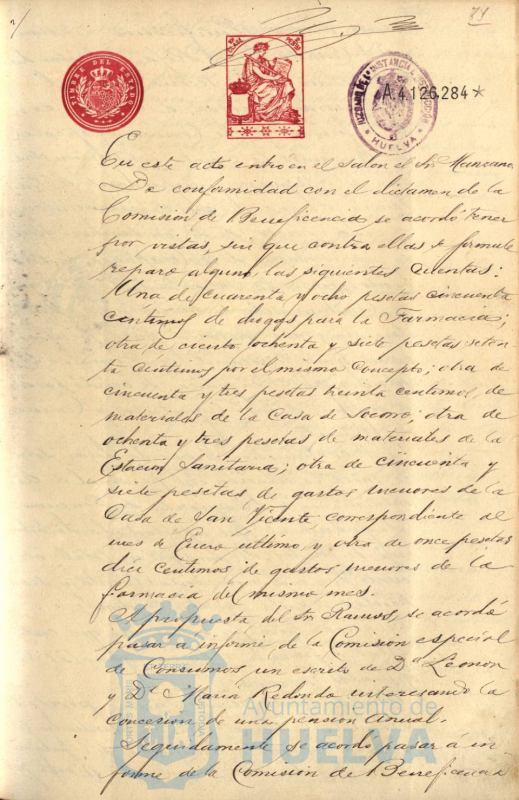 79
TIMBRE DEL ESTADO
HUELVA
A4126284*
En este acto entro en el salon el Sr Manzano.
De conformidad con el dictamen de la
Comisión de Beneficencia se acordó tener
por vistas, sin que contra ellas se formule
reparo alguno las siguientes cuentas:
Una de cuarenta y ocho pesetas cincuenta
centimos de drogas para la Farmacia;
otra de ciento ochenta y siete pesetas seten
ta centimos por el mismo concepto; otra de
cincuenta y tres pesetas treinta centimos de
materiales de la Casa de Socorro; otra de
ochenta y tres pesetas de materiales de la
Estacion Sanitaria; otra de cincuenta y
siete pesetas de gastos menores de la
Casa de San Vicente, correspondiente al
mes de Enero último, y otra de once pesetas
diez centimos de gastos menores de la
farmacia del mismo mes.
A propuesta del Sr Ramos, se acordó
pasar a informe de la Comisión especial
de Consumos un escrito de Dª Leonor
y Dª Maria Redondo interesando la
concesion de una pension anual.
Seguidamente se acordo pasar á in
forme de la Comisión de Beneficencia
Ayuntamiento de
HUELVA